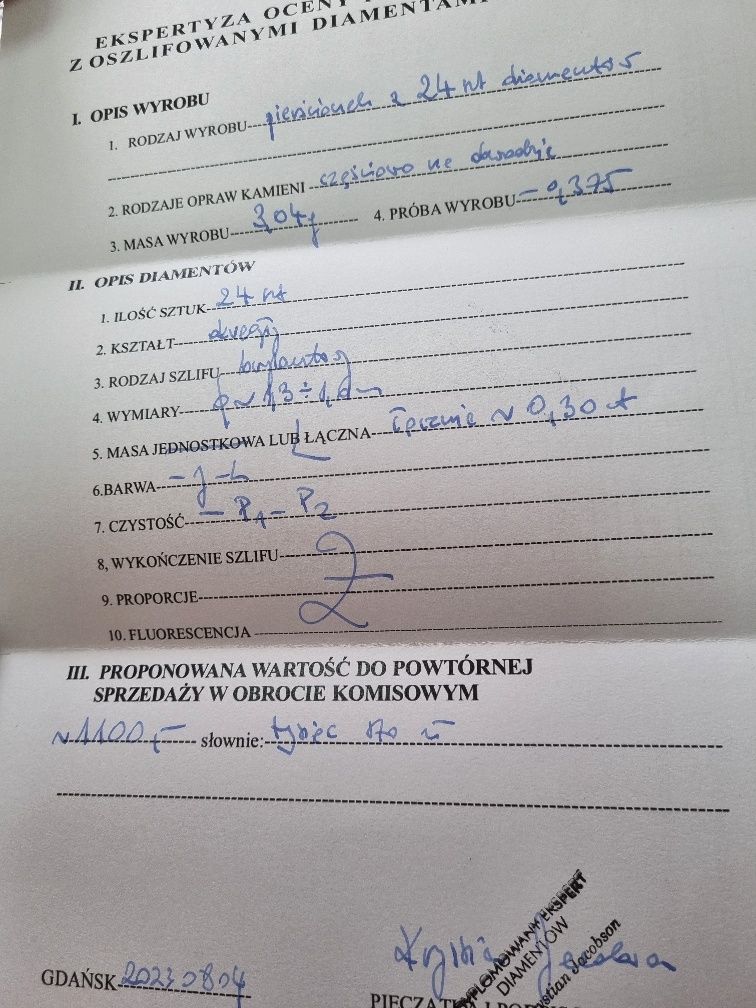 EKSPERTYZA OCENY
Z OSZLIFOWANYMI DIAMENTAMI
I. OPIS WYROBU
1. RODZAJ WYROBU pierścionek z 24 szt diamentów
2. RODZAJE OPRAW KAMIENI częściowo nie
3. MASA WYROBU 3,04g 4. PRÓBA WYROBU 0,375
II. OPIS DIAMENTÓW
1. ILOŚĆ SZTUK 24 szt
2. KSZTAŁT okrągły
3. RODZAJ SZLIFU brylantowy
4. WYMIARY ϕ ~ 1,3 ÷
5. MASA JEDNOSTKOWA LUB ŁĄCZNA łącznie ~ 0,30 ct
6.BARWA J-L
7. CZYSTOŚĆ P1 - P2
8, WYKOŃCZENIE SZLIFU
9. PROPORCJE
10. FLUORESCENCJA
III. PROPONOWANA WARTOŚĆ DO POWTÓRNEJ
SPRZEDAŻY W OBROCIE KOMISOWYM
~1100,- słownie: tysiąc sto zł
DYPLOMOWANY EKSPERT
DIAMENTÓW
Jacobson
GDAŃSK 20230804